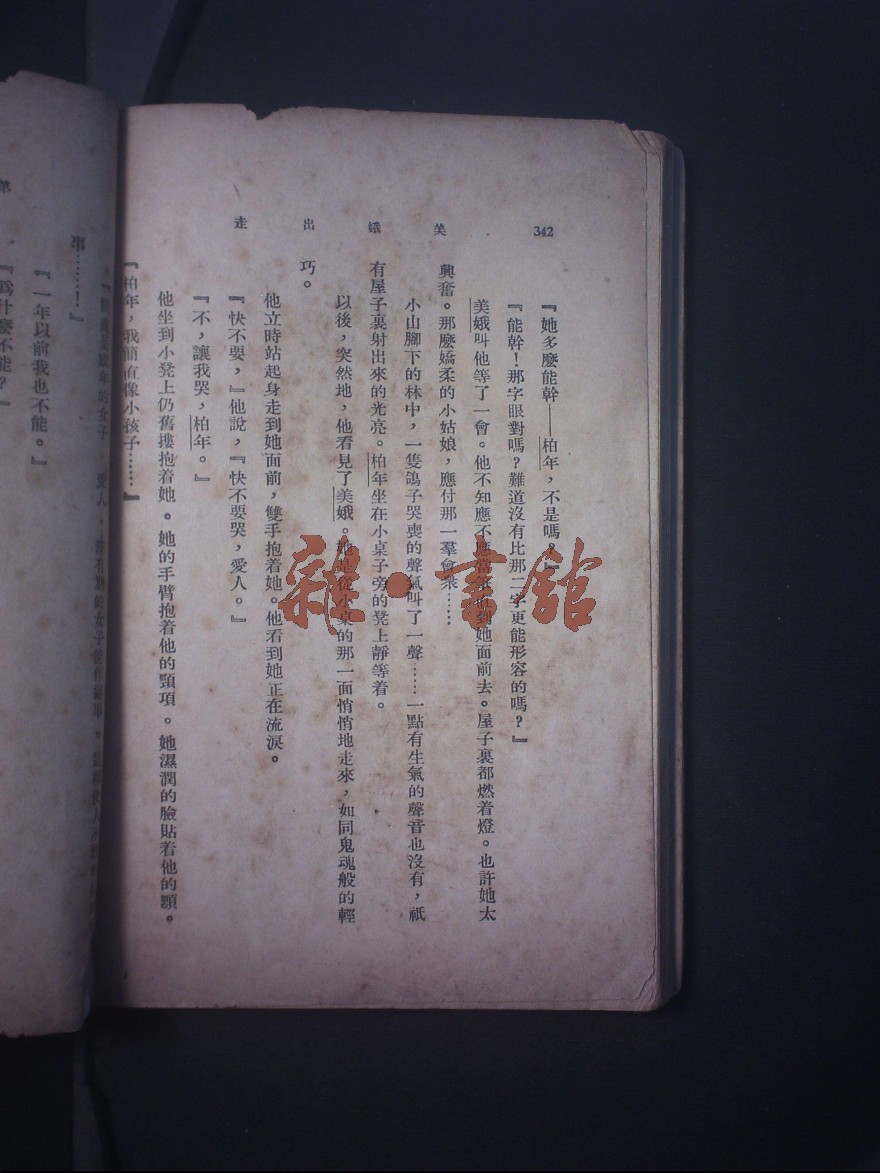 342
美娥出走
『她多麼能幹——柏年，不是嗎？』
『能幹！那字眼對嗎？難道沒有比那二字更能形容的嗎？』
美娥叫他等了一會。他不知應不應當 到她面前去。屋子裏都燃着燈。也許她太
興奮。那麼嬌柔的小姑娘，應付那一羣會衆……
小山脚下的林中，一隻鴿子哭喪的聲氣叫了一聲……一點有生氣的聲音也沒有，祇
有屋子裏射出來的光亮。柏年坐在小桌子旁的凳上靜等着。
以後，突然地，他看見了美娥。她是從小桌的那一面悄悄地走來，如同鬼魂般的輕
巧。
他立時站起身走到她面前，雙手抱着她。他看到她正在流淚。
『快不要，』他說，『快不要哭，愛人。』
『不，讓我哭，柏年。』
他坐到小凳上仍舊摟抱着她。她的手臂抱着他的頸項。她濕潤的臉貼着他的頰。
『柏年，我簡直像小孩子……』
事……！』
『一年以前我也不能。』
『爲什麼不能？』
雜·書館